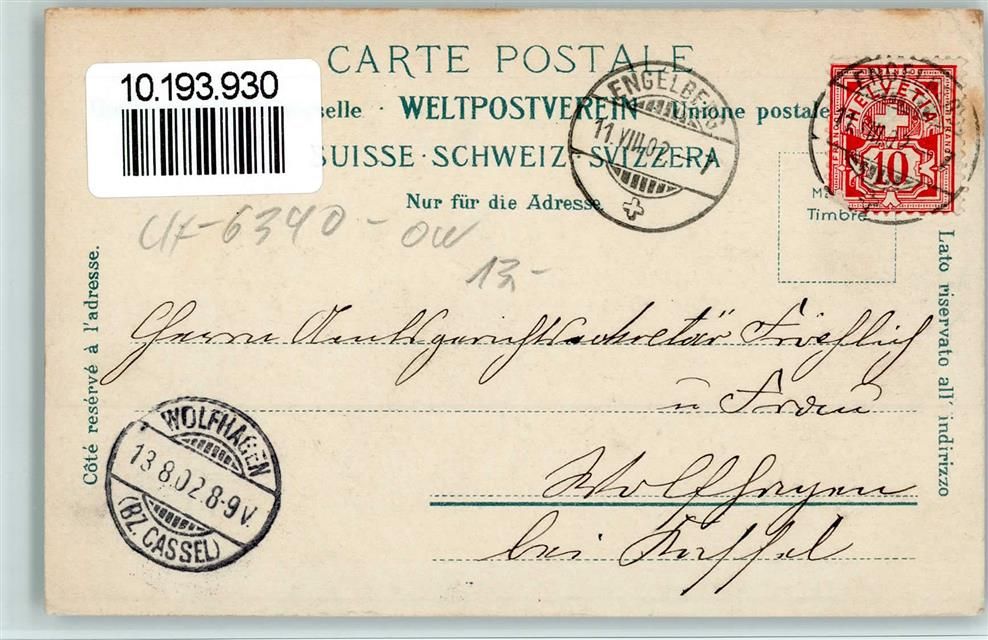 CARTE POSTALE
10.193.930
selle · WELTPOSTVEREIN · Unione postale
SUISSE · SCHWEIZ · SVIZZERA
Nur für die Adresse
ENGELBERG
11.VIII.02
HELVETIA
10
Timbre
6340-OW
13,-
Côté resérvé à l'adresse.
Lato riservato all' indirizzo
Herrn Amtsgerichtssekretär Fröhlich
u Frau
Wolfhagen
bei Kassel
WOLFHAGEN
13 8.02.8-9 V.
(BZ. CASSEL)